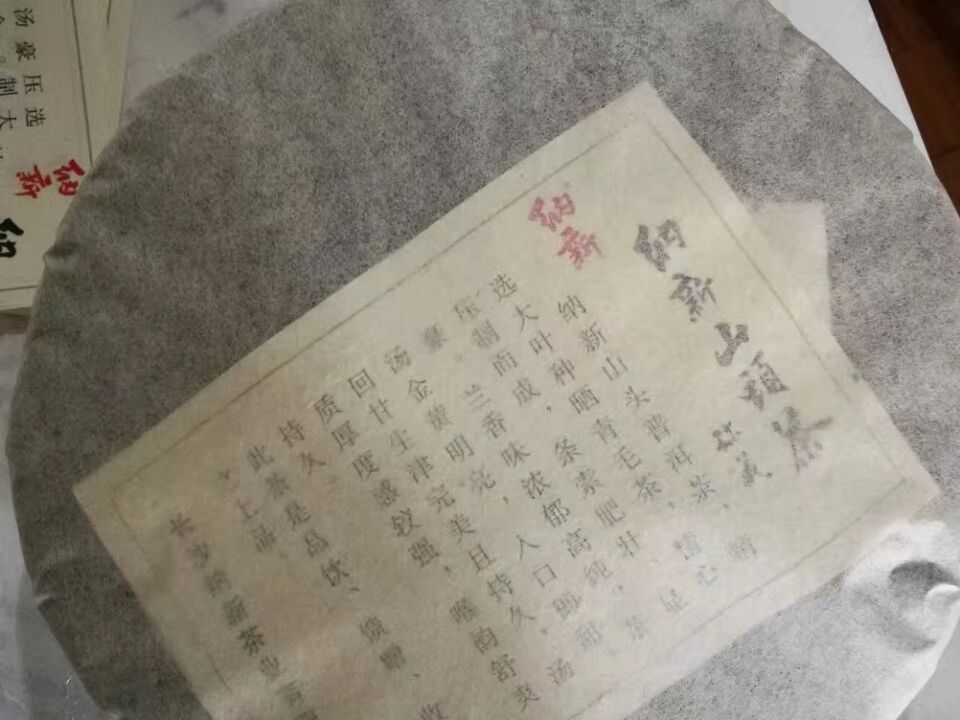 纳新山头茶
珍藏
纳新
纳新山头普洱茶，精
选大叶种晒青毛茶，精心
压制而成，条索肥壮，显
豪、兰香味浓郁高纯，
汤金黄明亮，入口
回甘生津完美且持久，汤
质厚度感较强，喉韵舒爽
持久
此茶是品饮、馈赠、收
上品
长沙纳新茶业
选
压制大
豪
汤
纳新
纳